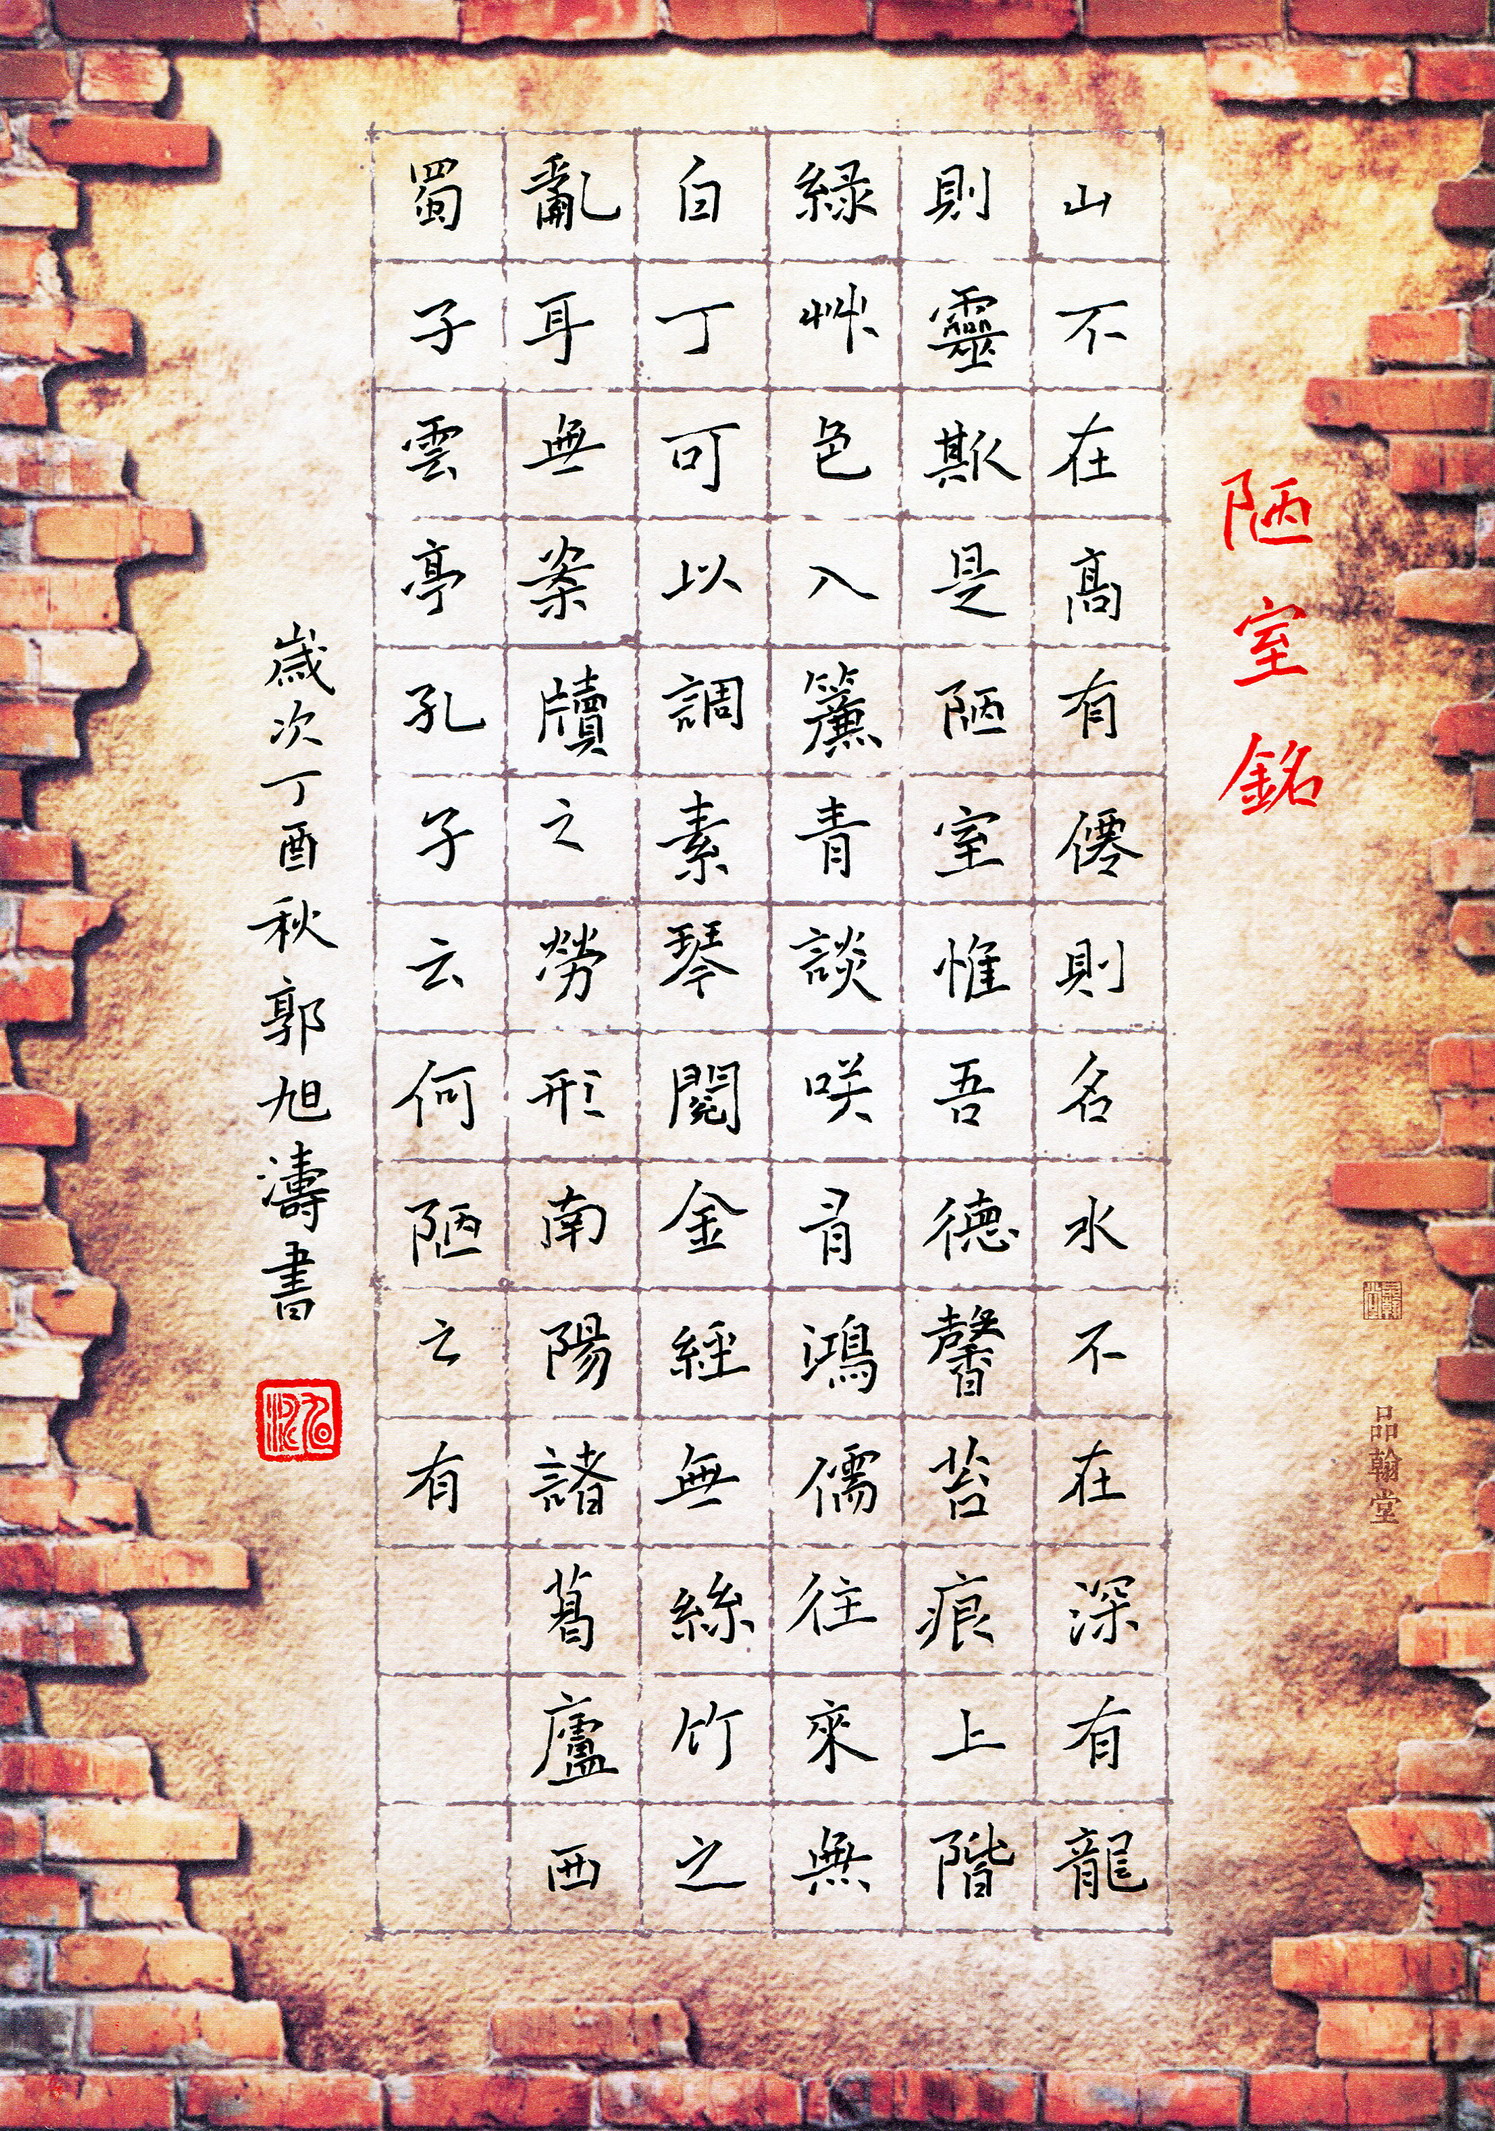 陋室銘
山不在高有僊則名水不在深有龍
則靈斯是陋室惟吾德馨苔痕上階
緑艸色入簾青談咲有鴻儒往來無
白丁可以調素琴閱金經無絲竹之
亂耳無案牘之勞形南陽諸葛廬西
蜀子雲亭孔子云何陋之有
歲次丁酉秋郭旭濤書
旭濤
品翰堂